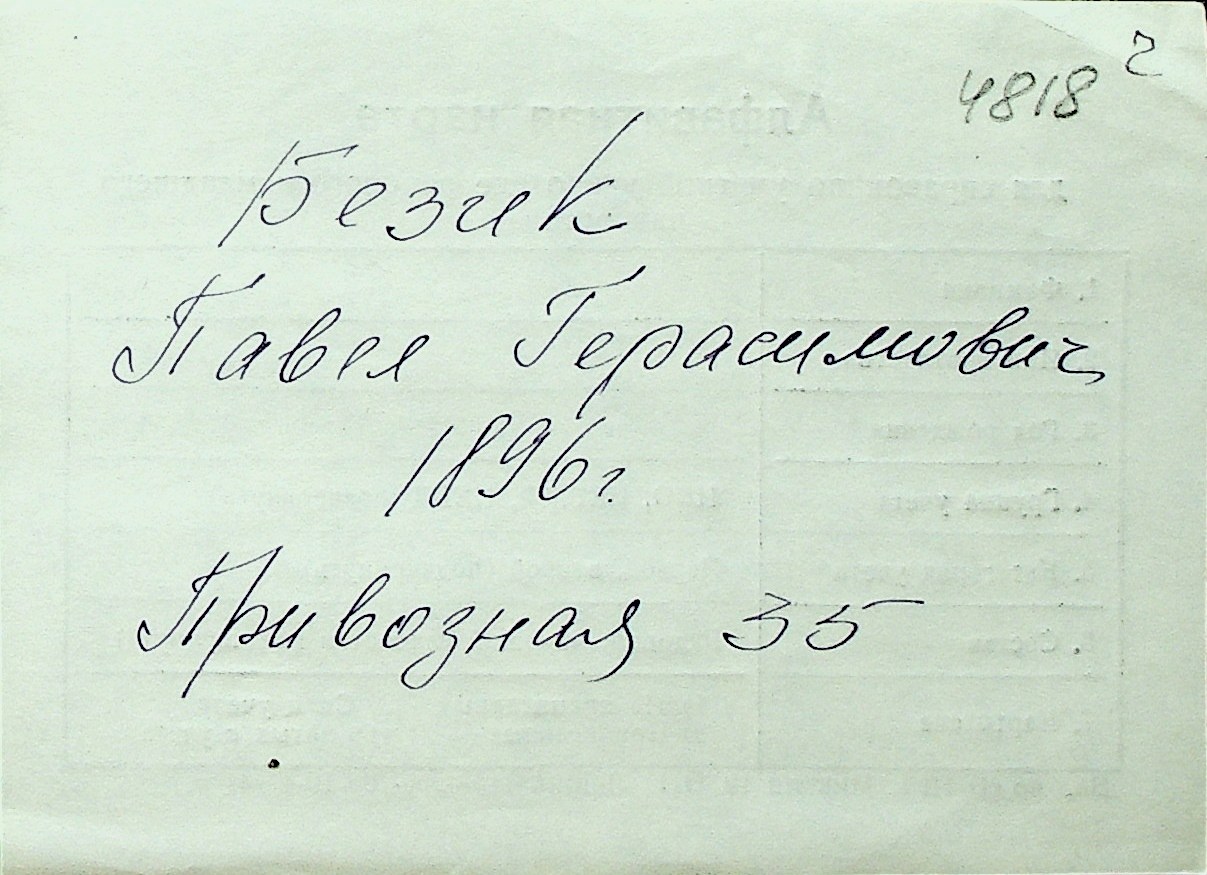 4818
Безик
Павел Герасимович
1896г.
Привозная 35